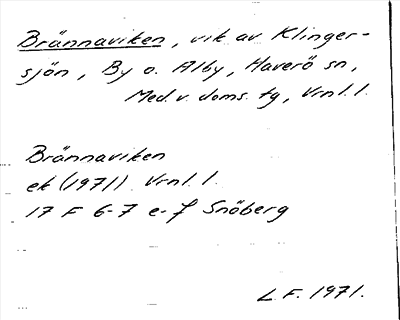 Brännaviken, vik av Klinger-
sjön, By o. Alby, Haverö sn,
Med. v. doms. tg, Vrnl. l.
Brännaviken
ek (1971) Vrnl. l.
17 F 6-7 e-f Snöberg
L.F. 1971.